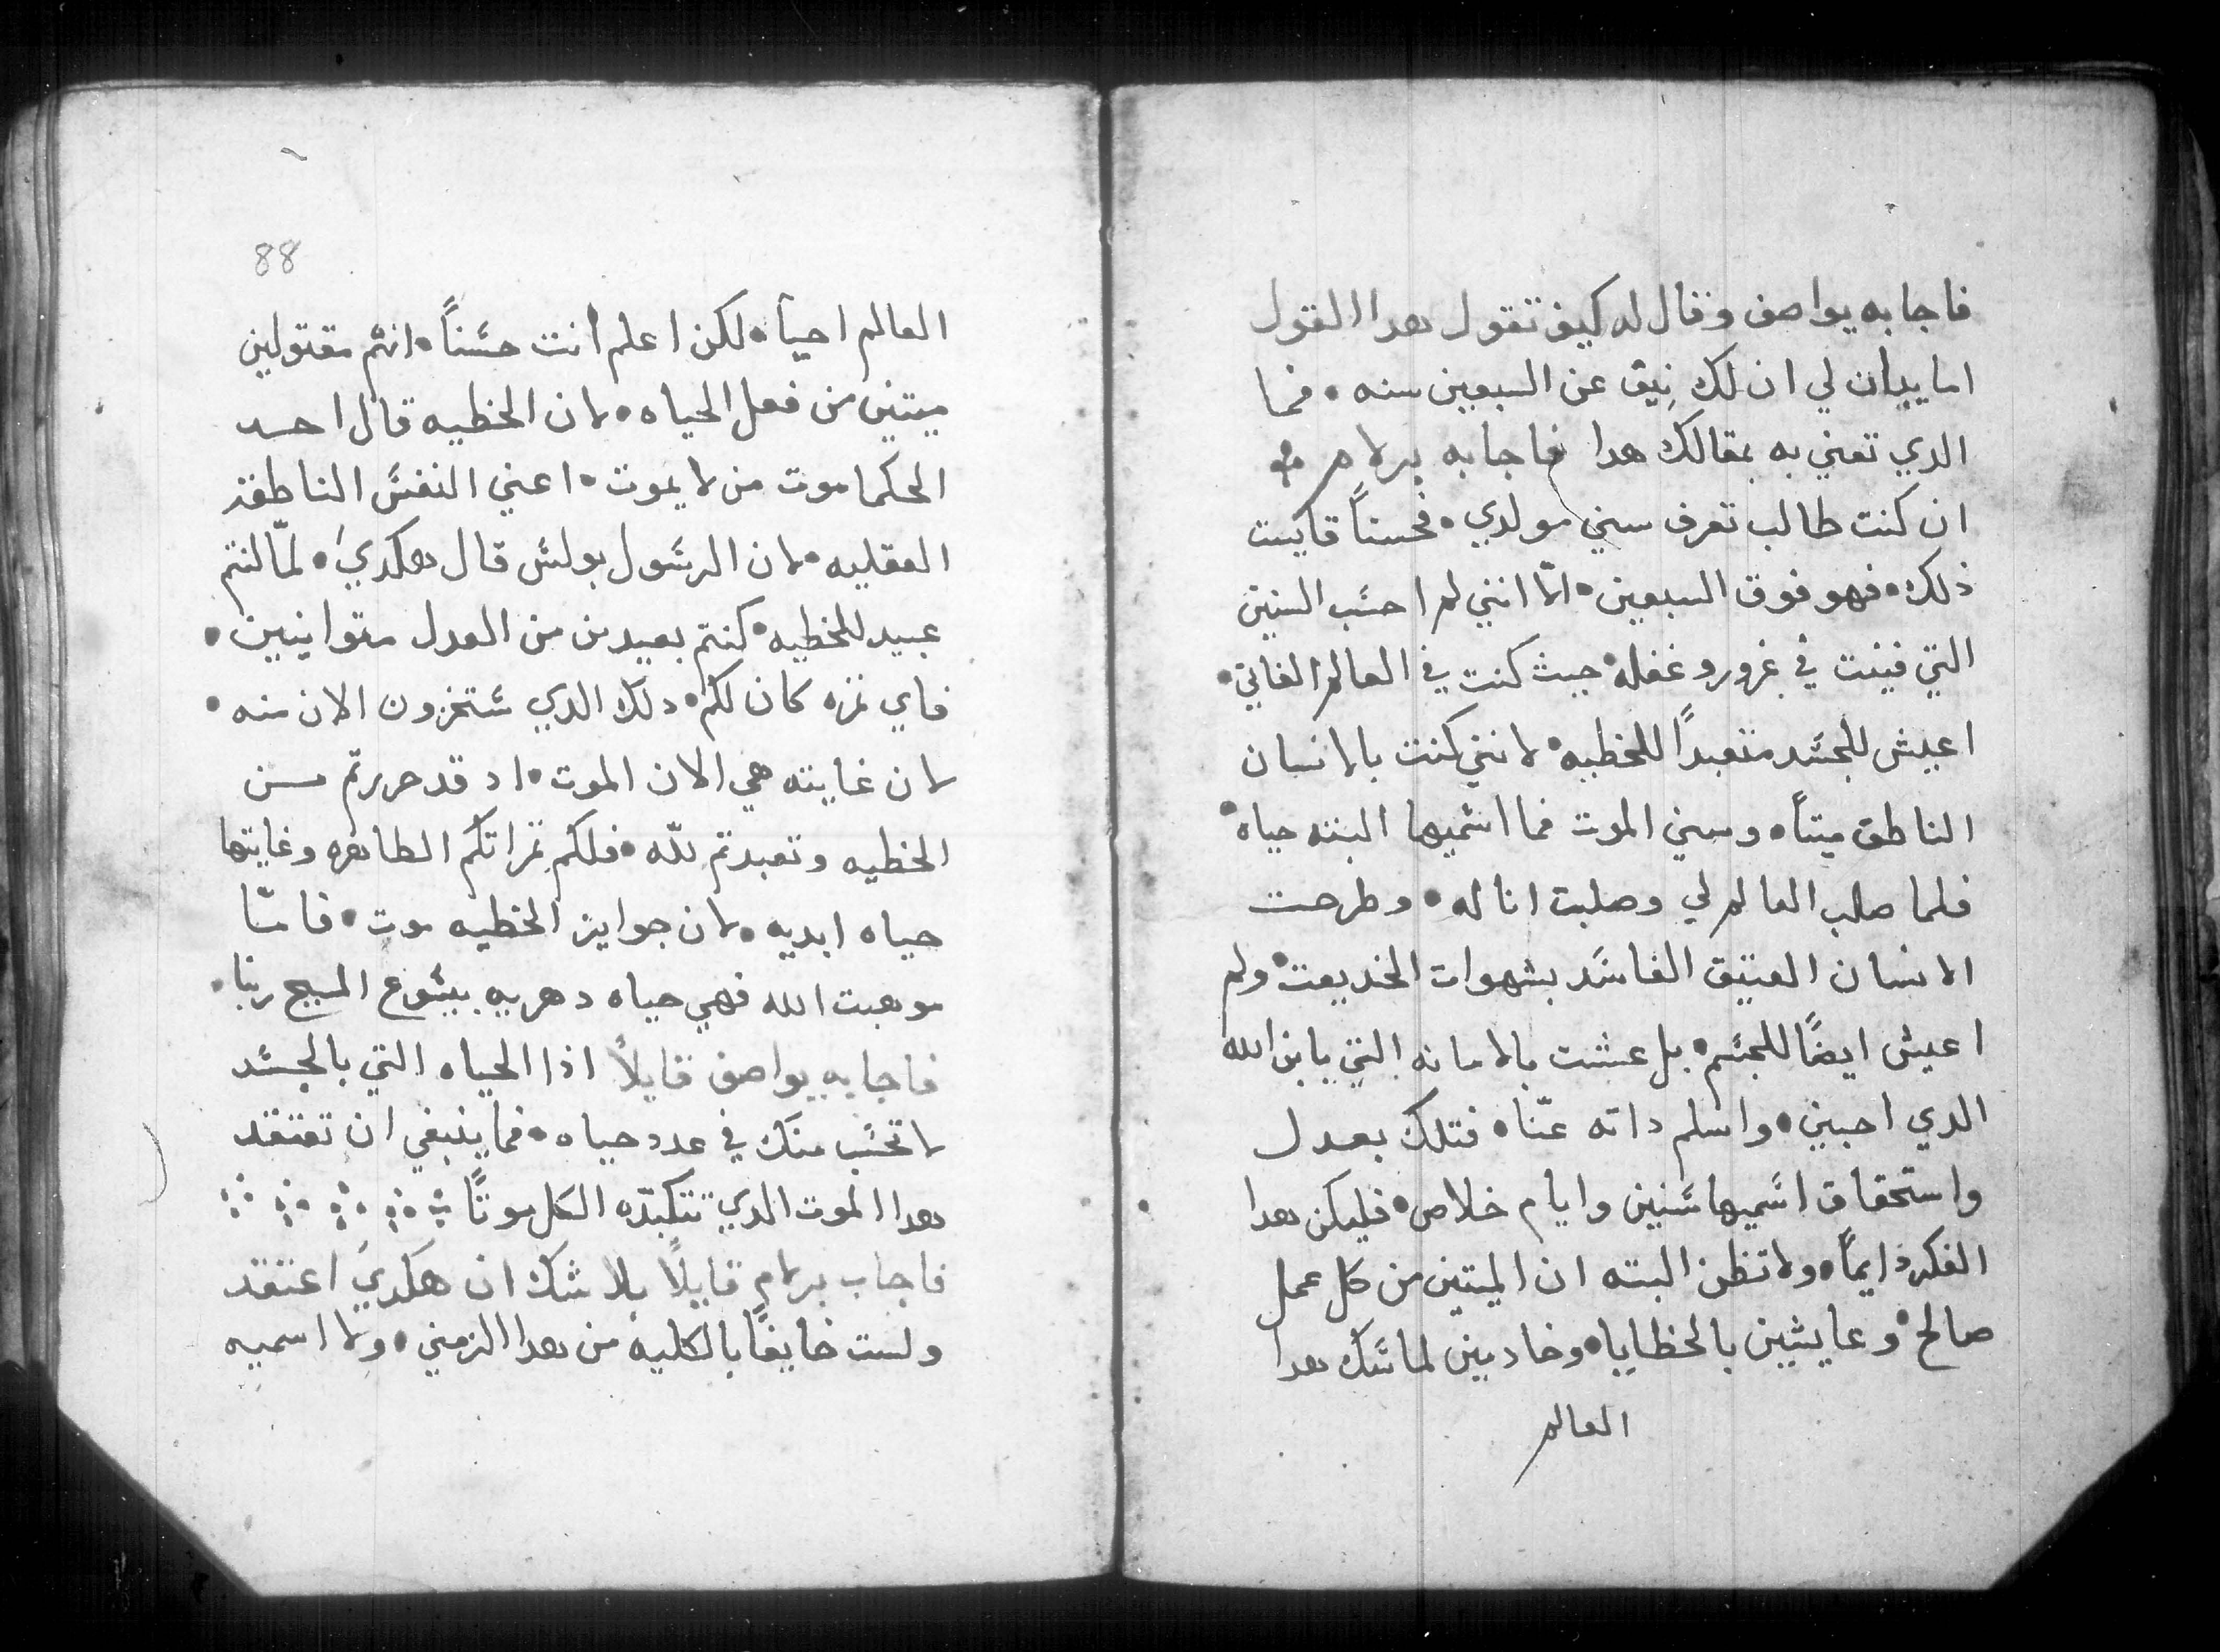 فاجابه يواصف وقال له كيف تقول هدا القول
اما يبان لي ان لك نيق عن السبعين سنه • فما
الدي تعني به بمقالك هدا فاجابه برلام
ان كنت طالب تعرف سني مولدي • فحسناً قايست
ذلك • فهو فوق السبعين • امّا انني لم احسَب السنين
التي فنيت في غرور وغفله • حيث كنت في العالم الفاني •
اعيش للجسَد متعبداً للخطيه • لانني كنت بالانسان
الناطق ميتاً • وسني الموت فما اسَميها البته حياه •
فلما صلب العالم لي وصلبت انا له • وطرحت
الانسان العتيق الفاسَد بشهوات الخديعت • ولم
اعيش ايضاً للجسَم • بل عشت بالامانه التي بابن الله
الدي احبني • واسلم داته عنّا • فتلك بعدل
واستحقاق اسَميها سَنين وايام خلاص • فليكن هدا
الفكر دايماً • ولا تظن البته ان الميتين من كل عمل
صالح • وعايشين بالخطايا • وخادمين لماسَك هدا
العالم
88
العالم احياً • لكن اعلم انت حسَناً • انهم مقتولين
ميتين من فعل الحياه • لان الخطيه قال احد
الحكما موت من لا يموت • اعني النفسَ الناطقه
العقليه • لان الرسَول بولسَ قال هكدي • لمّا كنتم
عبيد للخطيه • كنتم بعيدين من العدل متوانيين •
فاي تمره كان لكم • دلك الدي سَتخزون الان منه •
لان غايته هي الان الموت • اد قد حررتم من
الخطيه وتعبدتم لله • فلكم تمراتكم الطاهره وغايتها
حياه ابديه • لان جوايز الخطيه موت • فامّا
موهبت الله فهي حياه دهريه بيسَوع المسيح ربنا •
فاجابه يواصف قايلاً اذا الحياه التي بالجسَد
لا تحسَب منك في عدد حياه • فما ينبغي ان تعتقد
هدا الموت الدي تتكبدّه الكل موتاً
فاجاب برلام قايلاً بلا شك ان هكدي اعتقد
ولست خايفاً بالكليه من هدا الزمني • ولا اسميه